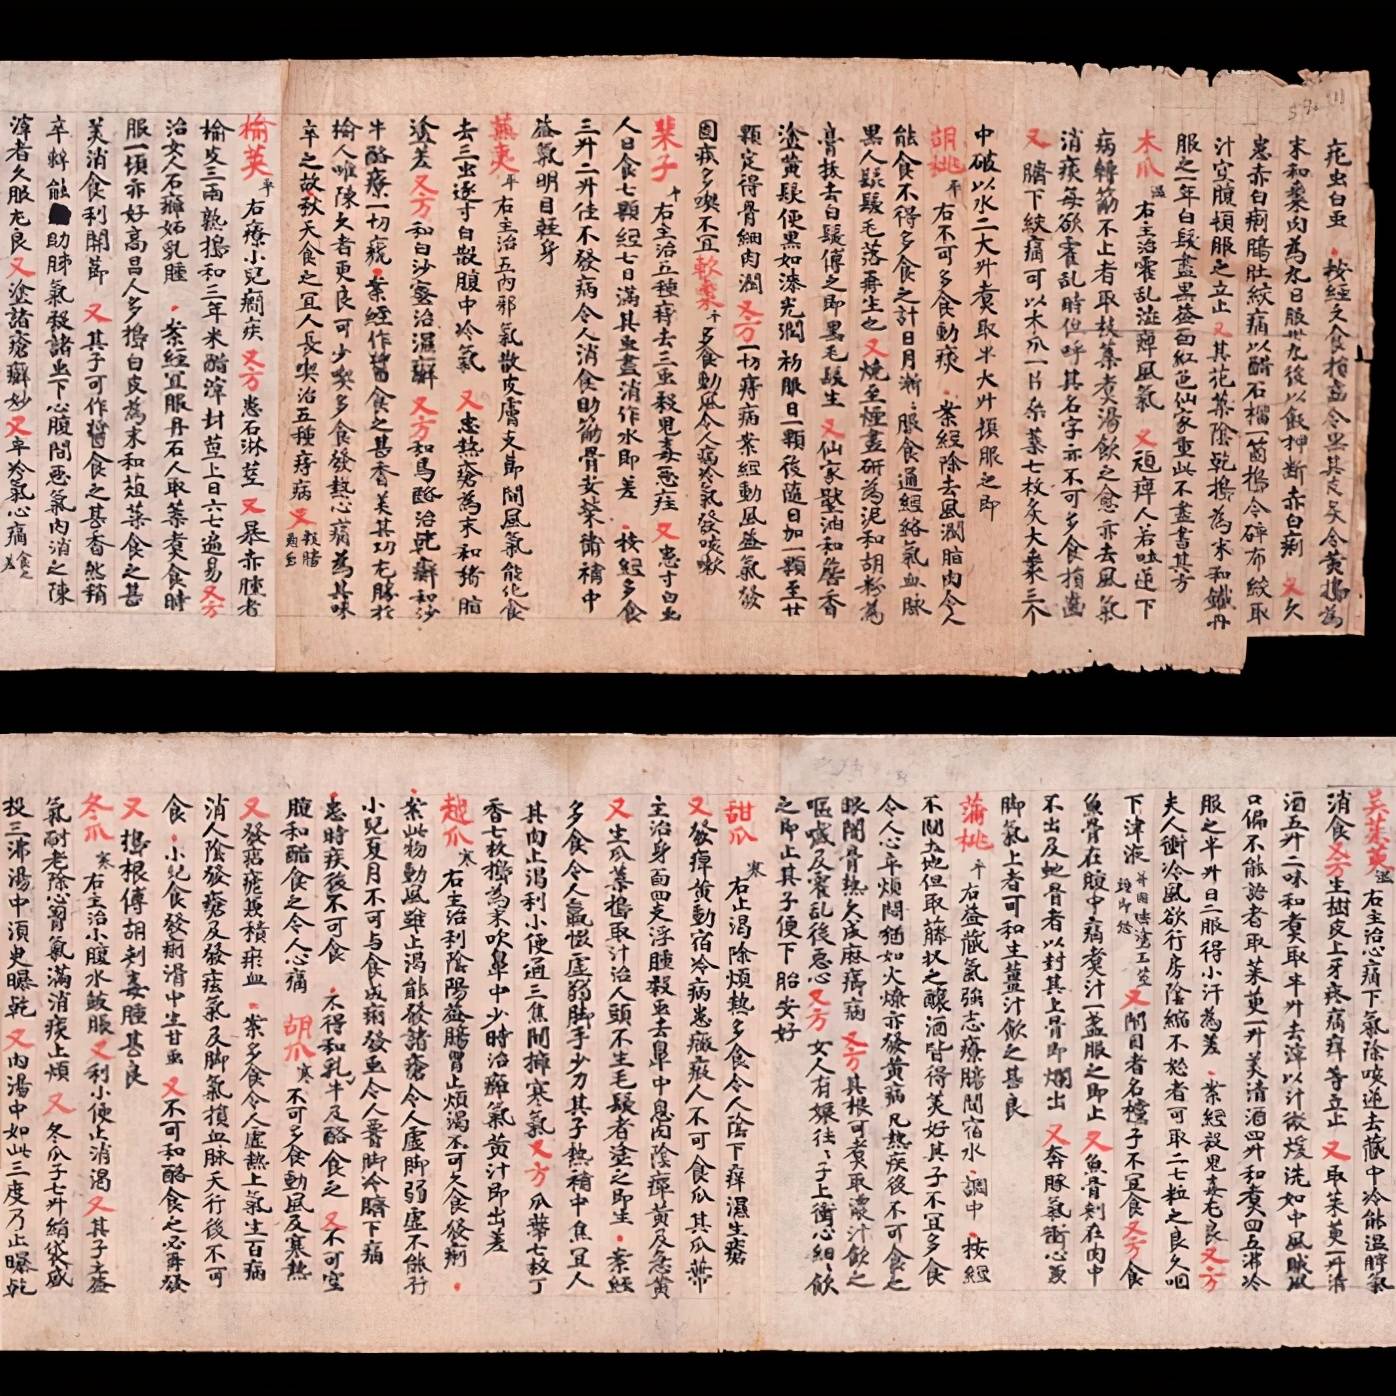 疕虫白虫 按經文食損齒令黑其皮炙令黄擣為
末和棗肉為丸日服卅丸後以飯押斷赤白痢 又久
患赤白痢腸肚絞痛以醋石榴一箇擣令碎布絞取
汁空腹頓服之立止 又其花葉陰乾擣為末和鐵丹
服之一年白髮盡黑益面紅色仙家重此不盡書其方
木瓜温 右主治霍乱澁痹風氣 又頑痹人若吐逆下
病轉筋不止者取枝葉煮湯飲之愈亦去風氣
消痰每欲霍乱時但呼其名字亦不可多食損齒
又 臍下絞痛可以木瓜一片桑葉七枚炙大棗三个
中破以水二大升煮取半大升頓服之即
胡桃平 右不可多食動痰 案經除去風潤脂肉令人
能食不得多食之計日月漸漸服食通經絡氣血脉
黑人髭髮毛落再生之 又燒至煙盡研為泥和胡粉為
膏拔去白髮傅之即黑毛髮生 又仙家壓油和詹香
塗黄髮便黑如漆光潤初服日一顆後隨日加一顆至廿
顆定得骨細肉潤 又方一切痔病案經動風益氣發
固疾多喫不宜軟棗平多食動風令人病冷氣發咳嗽
榧子平 右主治五種痔去三虫殺鬼毒惡疰 又患寸白虫
人日食七顆經七日滿其虫盡消作水即差 按經多食
三升二升佳不發病令人消食助筋骨安榮衛補中
益氣明目輕身
蕪荑平 右主治五內邪氣散皮膚支節間風氣能化食
去三虫逐寸白散腹中冷氣 又患熱瘡為末和猪脂
塗差 又方和白沙蜜治濕癬 又方和馬酪治乾癬和沙
牛酪療一切瘡 案經作醬食之甚香美其功尤勝於
榆人唯陳久者更良可少喫多食發熱心痛為其味
辛之故秋天食之宜人長喫治五種痔病又 殺腸
惡虫
榆莢平 右療小兒癎疾 又方患石淋莖 又暴赤腫者
榆皮三兩熟擣和三年米醋滓封莖上日六七遍易 又方
治女人石癰妬乳腫 案經宜服丹石人取葉煮食時
服一頓亦好高昌人多擣白皮為末和葅菜食之甚
美消食利關節 又其子可作醬食之甚香然稍
辛辣能助肺氣殺諸虫下心腹間惡氣內消之陳
滓者久服尤良 又塗諸瘡癬妙 又卒冷氣心痛 食之
差
吳茱萸温 右主治心痛下氣除咳逆去藏中冷能温脾氣
消食又方生樹皮上牙疼痛痒等立止 又取茱萸一升清
酒五升二味和煮取半升去滓以汁微煖洗如中風賊風
口偏不能語者取茱萸一升美清酒四升和煮四五沸冷
服之半升日二服得小汗為差 案經殺鬼毒尤良 又方
夫人衝冷風欲行房陰縮不怒者可取二七粒之良久咽
下津液 并用唾塗玉莖
頭即怒 又閉目者名欓子不宜食 又方食
魚骨在腹中痛煮汁一盞服之即止 又魚骨刺在肉中
不出及蛇骨者以封其上骨即爛出 又奔豚氣衝心兼
脚氣上者可和生薑汁飲之甚良
蒲桃平 右益藏氣強志療腸間宿水調中 按經
不問土地但取藤収之釀酒皆得美好其子不宜多食
令人心卒煩悶猶如火燎亦發黄病凡熱疾後不可食之
眼闇骨熱久成麻痛病 又方其根可煮取濃汁飲之
嘔噦及霍乱後惡心 又方女人有娠往往子上衝心細細飲
之即止其子便下胎安好
甜瓜寒 右止渴除煩熱多食令人陰下痒濕生瘡
又發瘅黄動宿冷病患癥瘕人不可食瓜其瓜蒂
主治身面四支浮腫殺虫去鼻中息肉陰瘅黄及急黄
又生瓜葉擣取汁治人頭不生毛髮者塗之即生 案經
多食令人羸惙虛弱脚手少力其子熱補中焦宜人
其肉止渴利小便通三焦間擁塞氣 又方瓜蒂七枚丁
香七枚擣為末吹鼻中少時治癰氣黄汁即出差
越瓜寒 右主治利陰陽益腸胃止煩渴不可久食發痢
案此物動風雖止渴能發諸瘡令人虛脚弱虛不能行
小兒夏月不可与食成痢發虫令人要脚冷臍下痛
患時疾後不可食 不得和乳牛及酪食之 又不可空
腹和醋食之令人心痛 胡瓜寒 不可多食動風及寒熱
又發痁瘧兼積瘀血 案多食令人虛熱上氣生百病
消人陰發瘡及發疰氣及脚氣損血脉天行後不可
食 小兒食發痢滑中生甘虫 又不可和酪食之必再發
又 擣根傅胡刺毒腫甚良
冬瓜寒 右主治小腹水鼓脹 又利小便止消渴 又其子主益
氣耐老除心胷氣滿消痰止煩 又冬瓜子七升絹袋盛
投三沸湯中須臾曝乾 又內湯中如此三度乃止曝乾